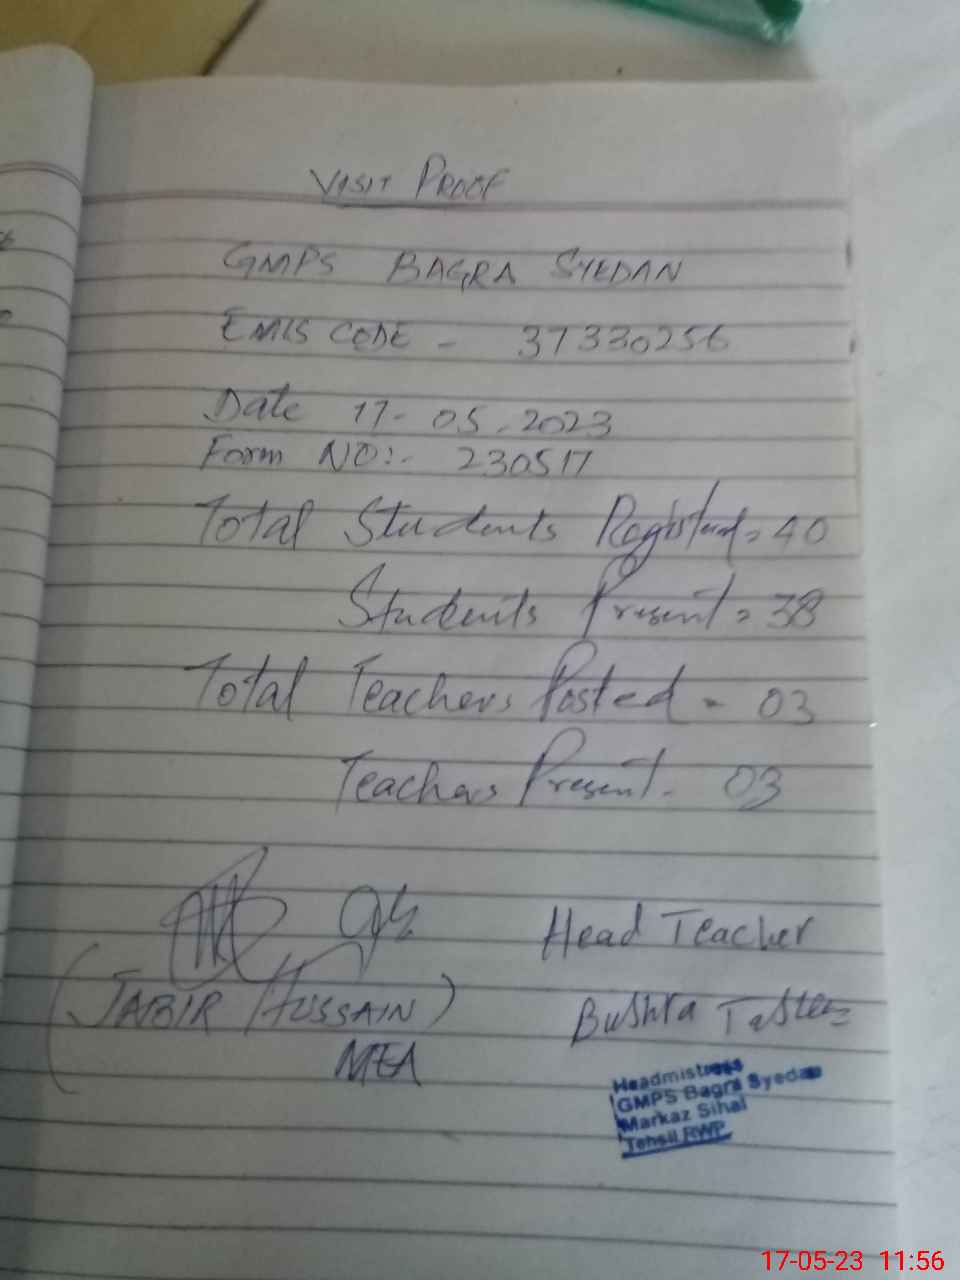 VISIT PROOF
GMPS BAGRA SYEDAN
EMIS CODE - 37330256
Date 17-05-2023
Form NO:- 230517
Total Students Registered = 40
Students Present = 38
Total Teachers Posted - 03
Teachers Present - 03
Head Teacher
(JABIR HUSSAIN)
Bushra
MEA
Headmistress
GMPS Bagra Syedan
Markaz Sihal
Tehsil RWP
17-05-23 11:56